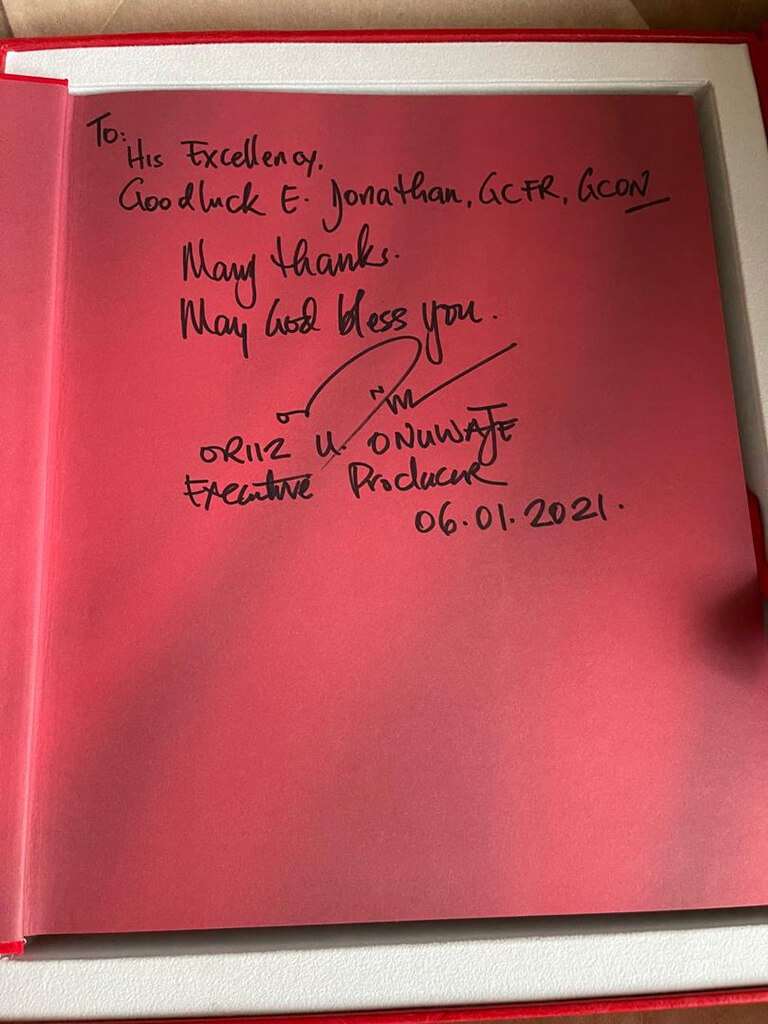 To:
His Excellency,
Goodluck E. Jonathan, GCFR, GCON
Many thanks.
May God bless you.
ORIIZ U. ONUWAJE
Executive Producer
06.01.2021.